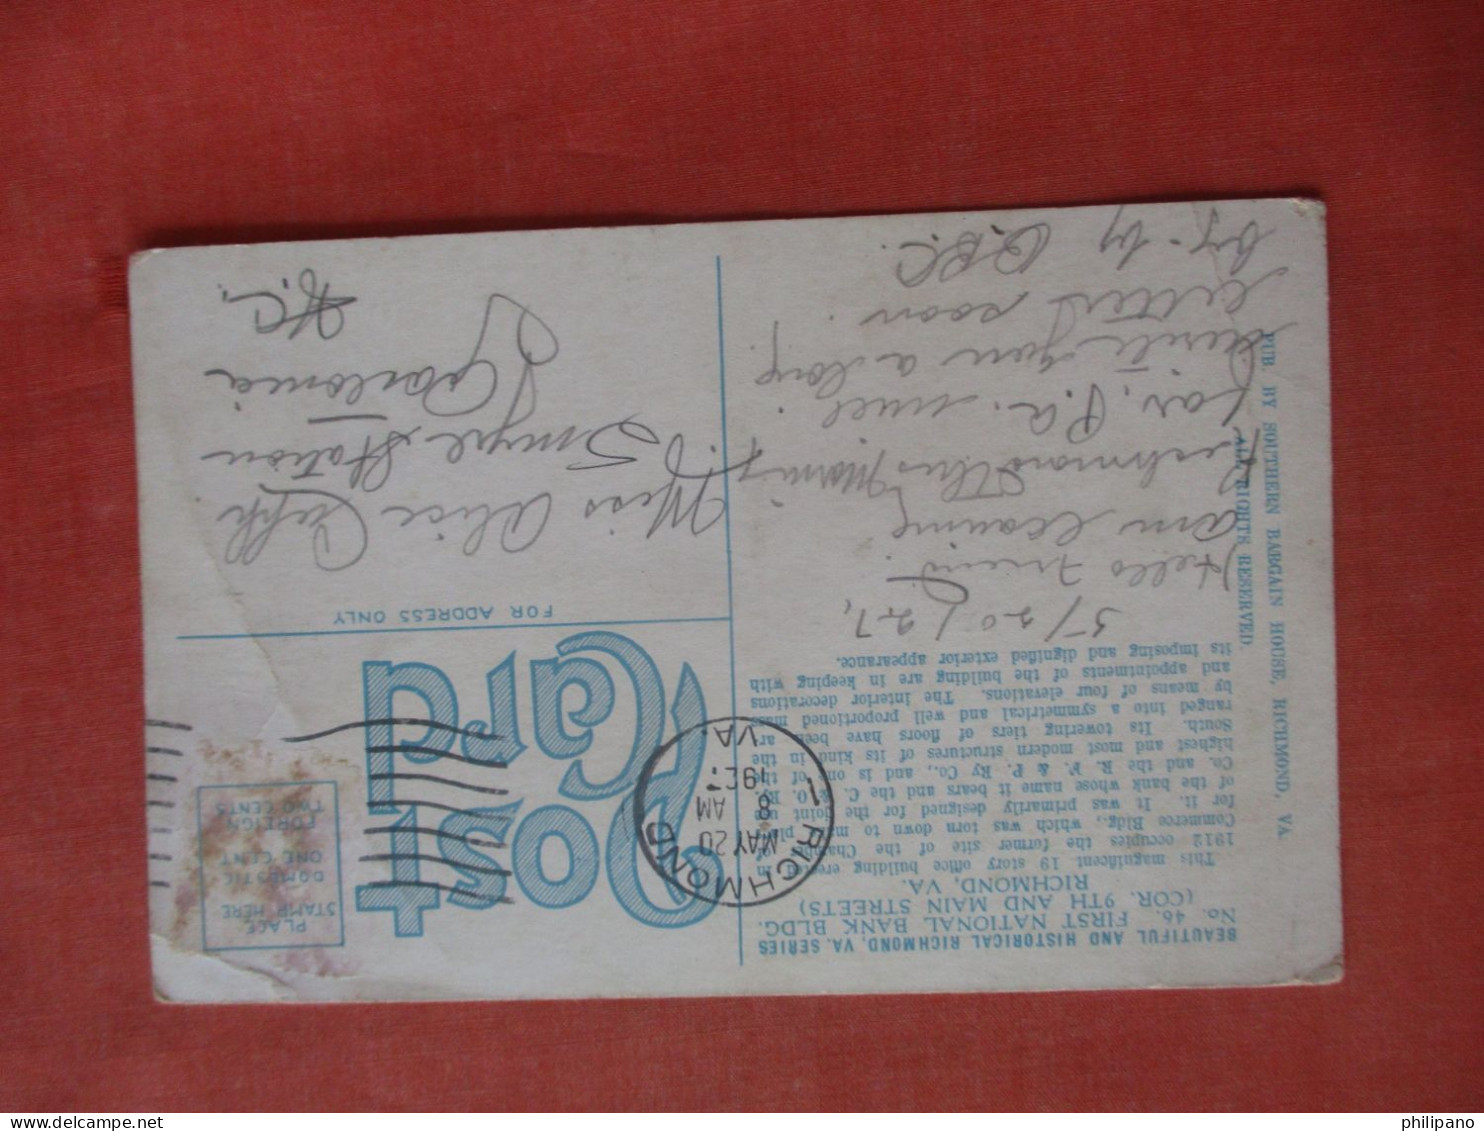 BEAUTIFUL AND HISTORICAL RICHMOND, VA. SERIES
No. 46. FIRST NATIONAL BANK BLDG.
(COR. 9TH AND MAIN STREETS)
RICHMOND, VA.
This magnificent 19 story office building erected in
1912 occupies the former site of the Chamber of
Commerce Bldg., which was torn down to make place
for it. It was primarily designed for the joint use
of the bank whose name it bears and the C. & O. Ry.
Co. and the R. F. & P. Ry Co., and is one of the
highest and most modern structures of its kind in the
South. Its towering tiers of floors have been ar-
ranged into a symmetrical and well proportioned mass
by means of four elevations. The interior decorations
and appointments of the building are in keeping with
its imposing and dignified exterior appearance.
5/20/27,
Hello Friend.
am leaving
Richmond this morning
for, Pa. will
write you a long
letter soon.
by-by
PUB BY SOUTHERN BARGAIN HOUSE, RICHMOND, VA.
ALL RIGHTS RESERVED.
Post Card
RICHMOND
1
MAY 20
8 AM
192
VA.
PLACE
STAMP HERE
DOMESTIC
ONE CENT
FOREIGN
TWO CENTS
FOR ADDRESS ONLY
Miss Alice
Smyre Station
Gastonia
N.C.
philipano